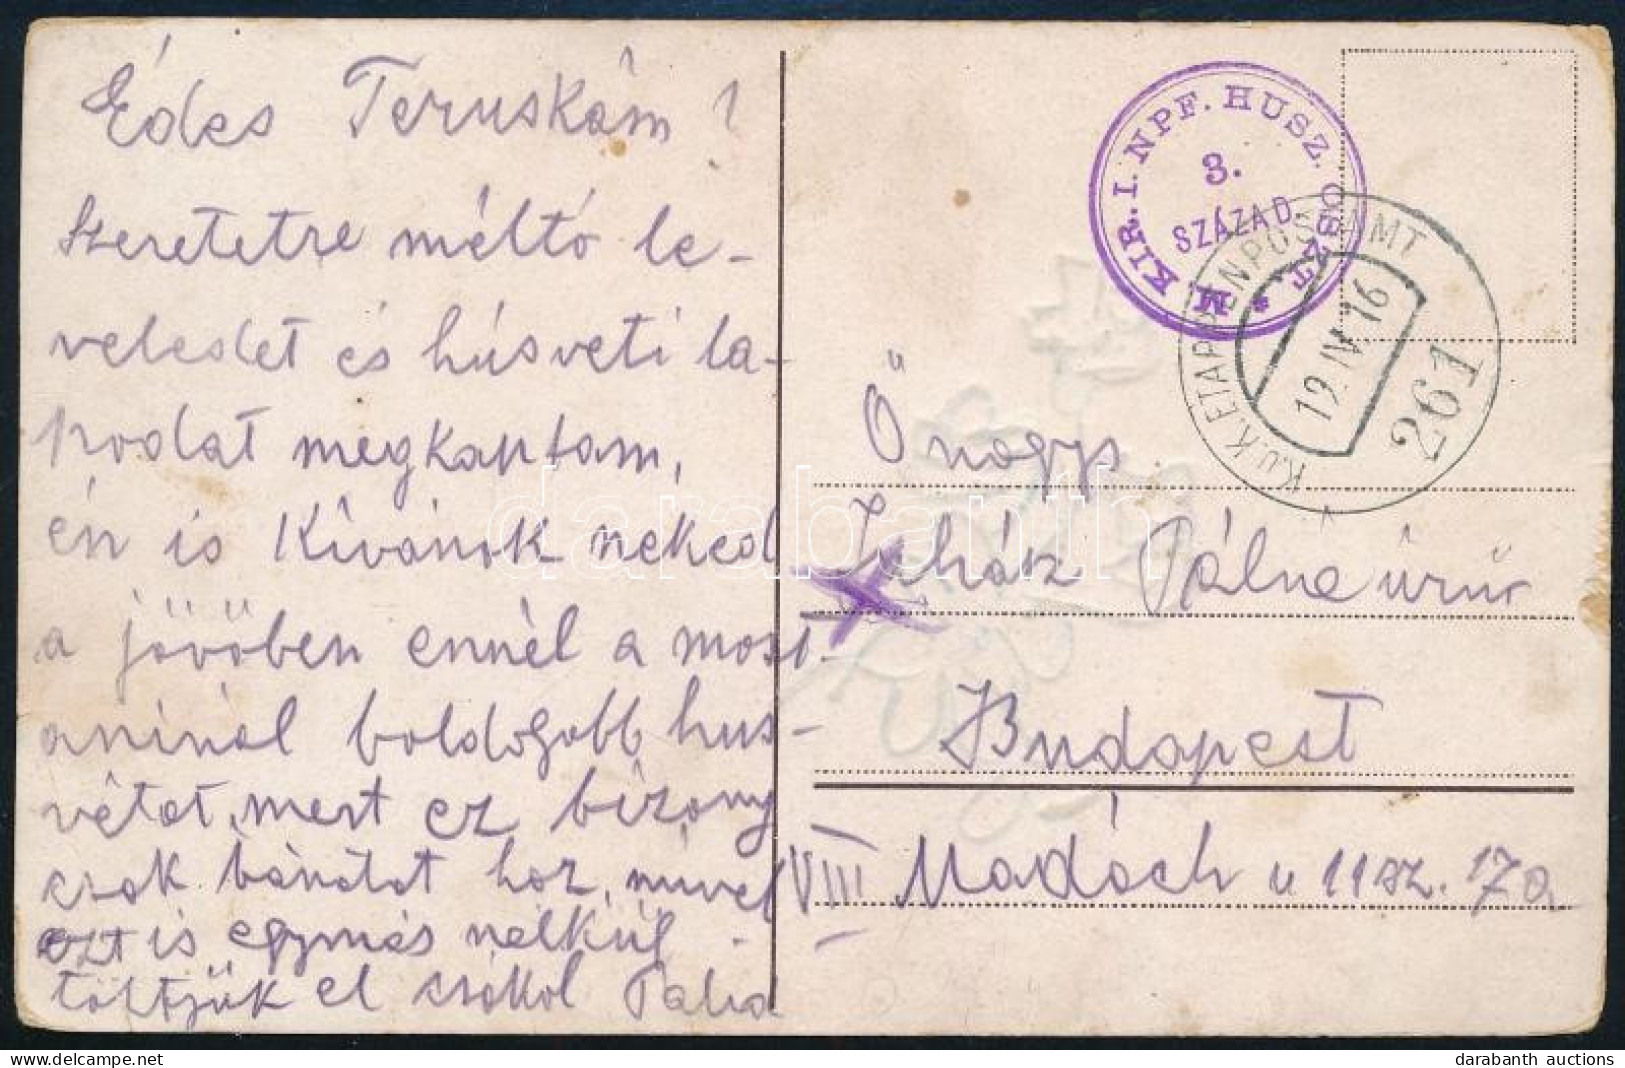 Édes Teruskám!
Szeretetre méltó le-
veledet és húsveti la-
podat megkaptam,
én is kívánok neked
a jövöben ennél a most-
aninál boldogobb hus-
vétot, mert ez bizony
csak bánatot hoz, mivel
ezt is egymás nélkül
töltjük el csókol Palid
M. KIR. I. NPF. HUSZ. OSZT. *
3.
SZÁZAD
K.U.K. ETAPPENPOSTAMT
19.IV.16
261
Őnagys
Juhász Pálne úrnő
Budapest
VIII Madách u 11 sz. 17 a
darabanth
darabanth auctions